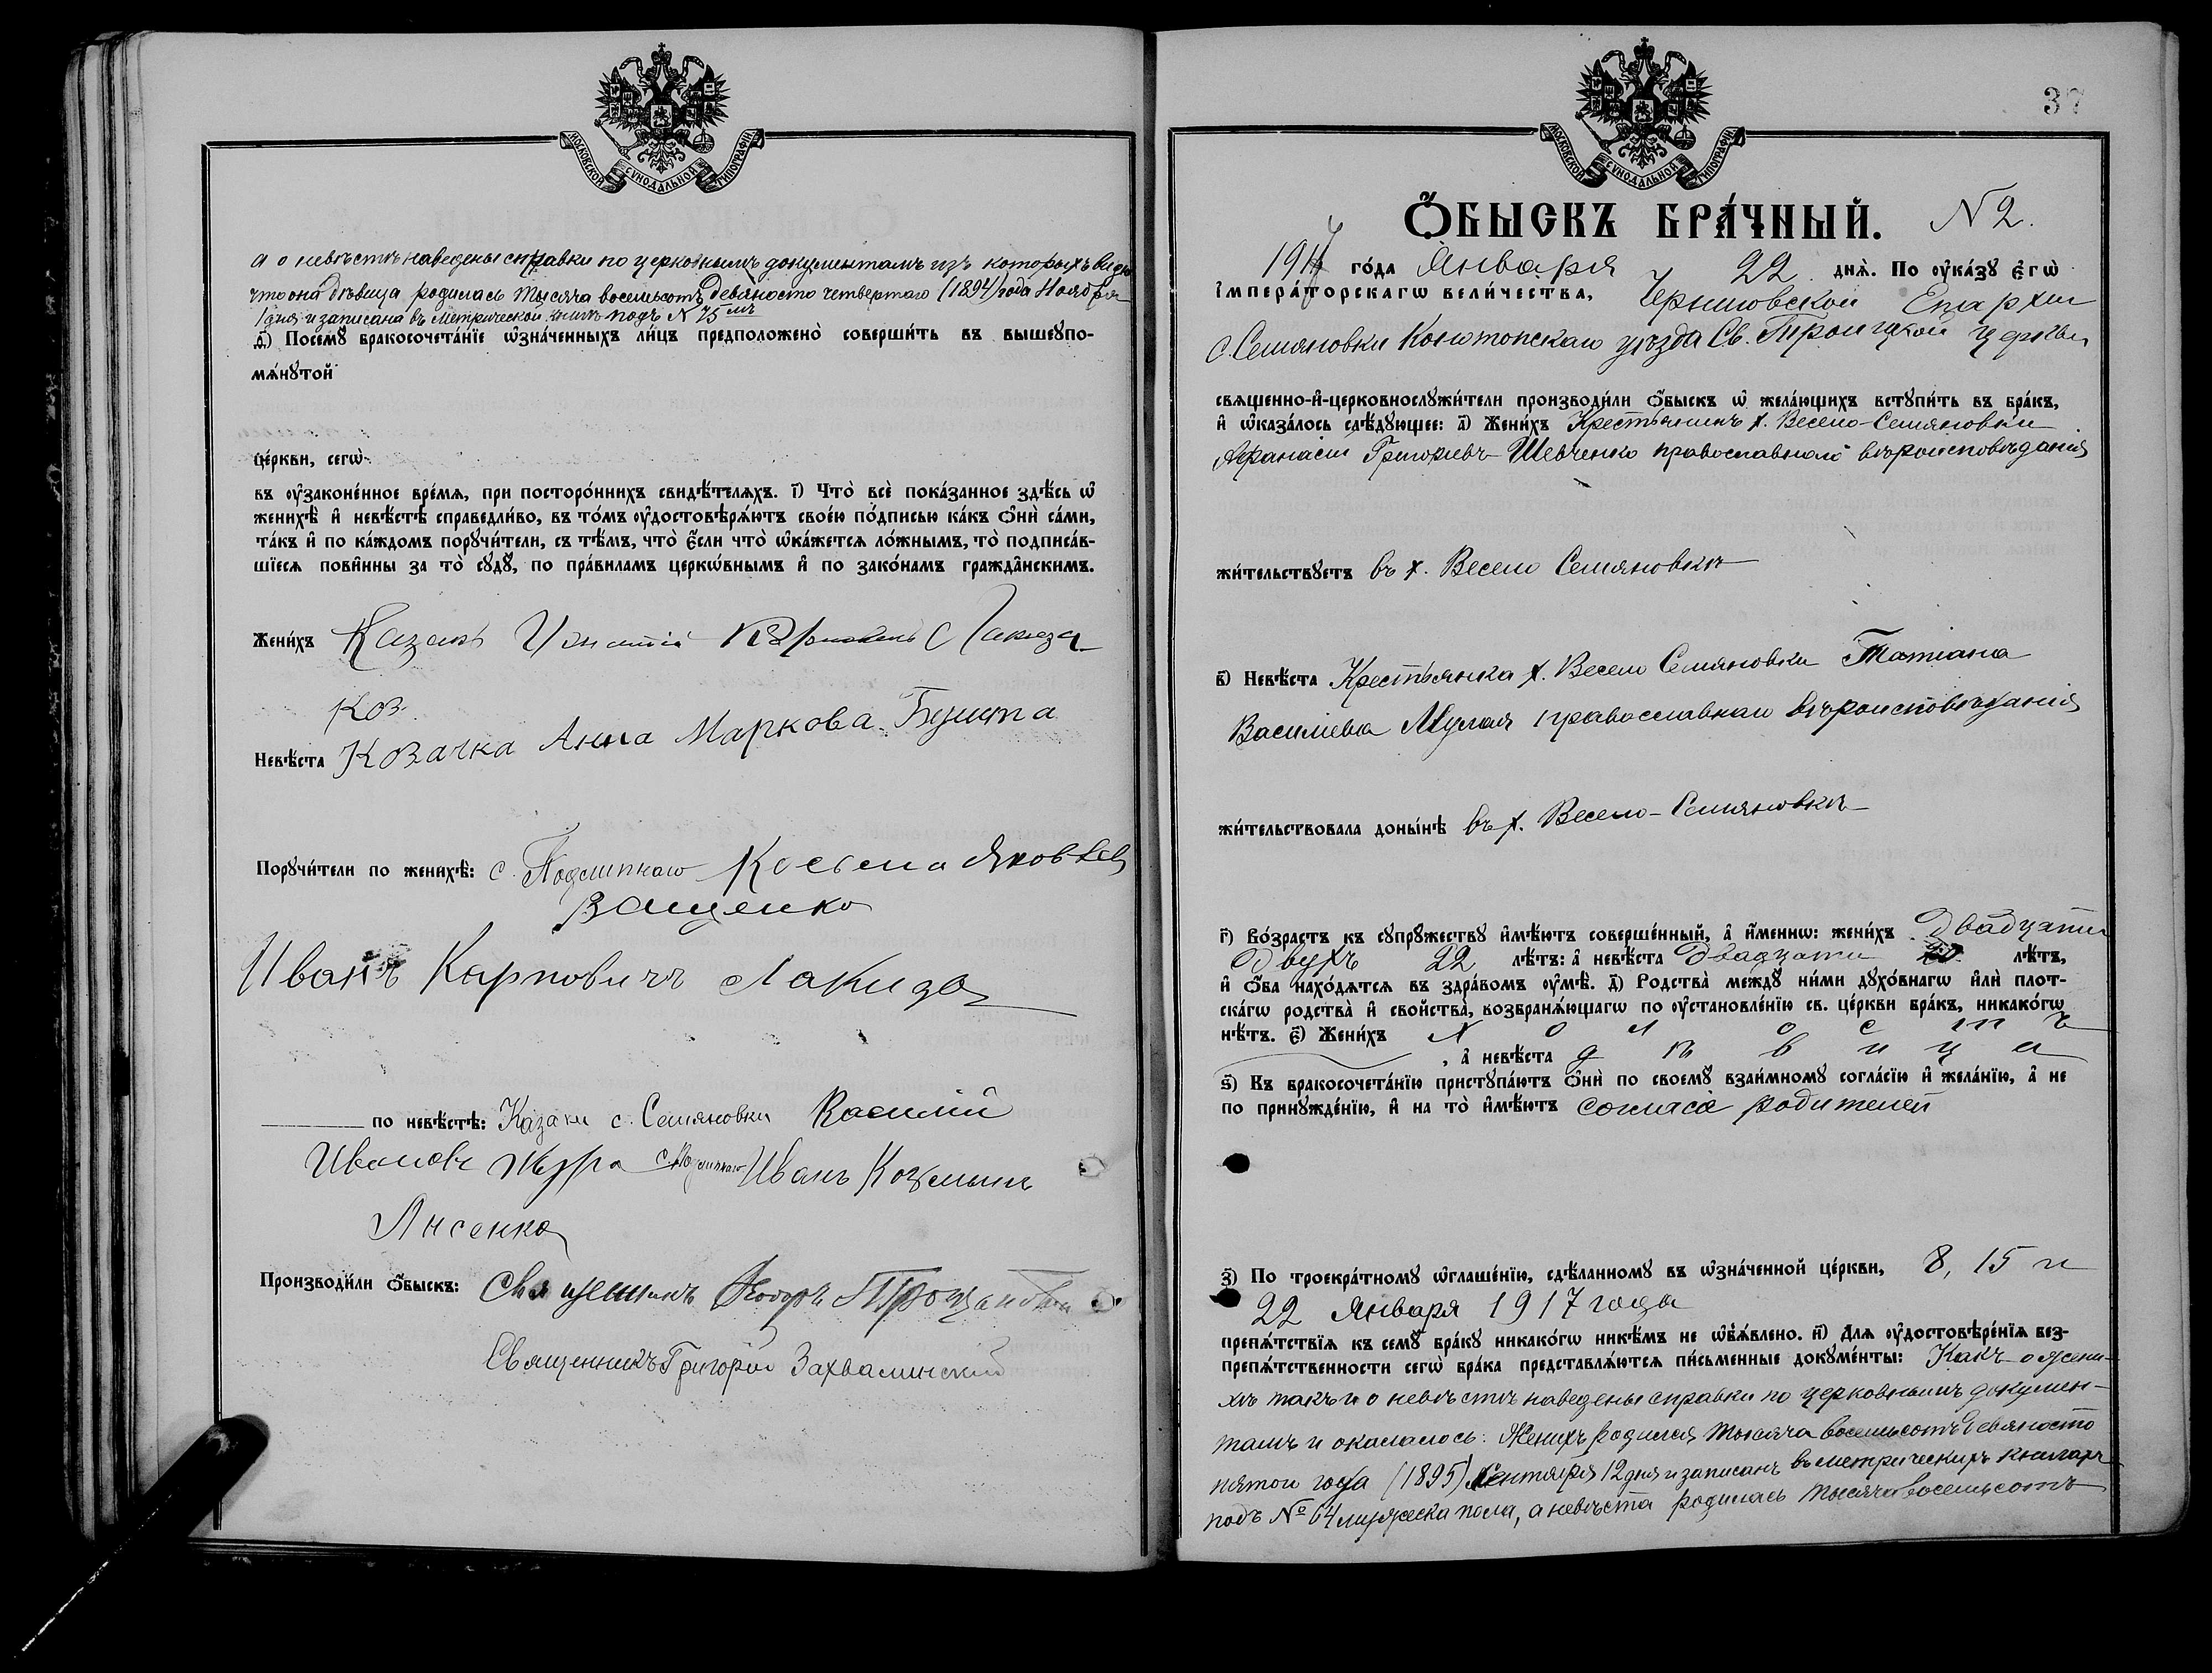 МОСКОВСКОЙ СУНОДАЛЬНОЙ ТИПОГРАФІИ
а о невѣстѣ наведены справки по церковнымъ документамъ изъ которыхъ видно
что она дѣвица родилась тысяча восемьсотъ девяносто четвертаго (1894) года Ноября
1 дня и записана въ метрической книгѣ подъ N 75
д҃) Посемꙋ̀ бракосочета́нїе ѡ҆зна́ченныхъ ли́цъ предположено̀ соверши́ть въ вышеꙋпо-
мѧ́нꙋтой
це́ркви, сегѡ̀
въ ᲂу҆зако́ненное вре́мѧ, при посторо́ннихъ свидѣ́телѧхъ. і҃) Что̀ всѐ пока́занное здѣ́сь ѡ҆
женихѣ̀ и҆ невѣ́стѣ справедли́во, въ то́мъ ᲂу҆достовѣрѧ́ютъ свое́ю по́дписью ка́къ ѻ҆нѝ са́ми,
та́къ и҆ по ка́ждомъ порꙋчи́тели, съ тѣ́мъ, что̀ є҆́сли что̀ ѡ҆ка́жетсѧ ло́жнымъ, то̀ подписа́в-
шїесѧ пови́нны за то̀ сꙋдꙋ̀, по пра́виламъ церкѡ́внымъ и҆ по зако́намъ гражда̑нскимъ.
Жени́хъ Казакъ Лакиза
Коз.
Невѣ́ста Козачка Анна Маркова
Порꙋчи́тели по женихѣ̀: с. Подлипнаго Косьма Яковлев
Ващенко
Иванъ Карповичъ Лакиза
по невѣ́стѣ: Казаки с. Семяновки Василій
Ивановъ Жура с. Подлипнаго Иванъ Козьминъ
Лисенко
Производи́ли ѻ҆́быскъ: Священникъ Ѳеодоръ
Священникъ Григорій Захвалинскій
37
МОСКОВСКОЙ СУНОДАЛЬНОЙ ТИПОГРАФІИ
Ѻ҆́БЫСКЪ БРА́ЧНЫЙ. N 2.
1917 го́да Января 22 днѧ̀. По ᲂу҆ка́зꙋ є҆гѡ̀
і҆мпера́торскагѡ вели́чества, Черниговской Епархіи
с. Семяновки Конотопскаго уѣзда Св. Троицкой церкви
свѧщенно-и҆-церковнослꙋжи́тели производи́ли ѻ҆́быскъ ѡ҆ жела́ющихъ встꙋпи́ть въ бра́къ,
и҆ ѡ҆каза́лось слѣ́дꙋющее: а҃) Жени́хъ Крестьянинъ х. Весело-Семяновки
Афанасій Григоріевъ Шевченко православнаго вѣроисповѣданія
жи́тельствꙋетъ въ х. Весело Семяновкѣ
в҃) Невѣ́ста Крестьянка х. Весело Семяновки Татіана
Василіева православнаго вѣроисповѣданія
жи́тельствовала доны́нѣ въ х. Весело-Семяновкѣ
г҃) Во́зрастъ къ сꙋпрꙋ́жествꙋ и҆мѣ́ютъ соверше́нный, а҆ и҆́меннѡ: жени́хъ двадцати
двухъ 22 лѣ́тъ: а҆ невѣ́ста двадцати 20 лѣ́тъ,
и҆ ѻ҆́ба нахо́дѧтсѧ въ здра́вомъ ᲂу҆мѣ̀. д҃) Родства̀ междꙋ̀ ни́ми дꙋхо́внагѡ и҆лѝ плот-
ска́гѡ родства̀ и҆ сво́йства̀, возбранѧ́ющагѡ по ᲂу҆становле́нїю св. це́ркви бра́къ, никако́гѡ
нѣ́тъ. є҃) Жени́хъ холостъ
, а҆ невѣ́ста дѣвица
ѕ҃) Къ бракосочета́нїю пристꙋпа́ютъ ѻ҆нѝ по своемꙋ̀ взаи́мномꙋ согла́сїю и҆ жела́нїю, а҆ не
по принꙋжде́нїю, и҆ на то̀ и҆мѣ́ютъ согласіе родителей
з҃) По троекра́тномꙋ ѡ҆глаше́нїю, сдѣ́ланномꙋ въ ѡ҆зна́ченной це́ркви, 8, 15 и
22 Января 1917 года
препѧ́тствїѧ къ семꙋ̀ бра́кꙋ никако́гѡ никѣ́мъ не ѡ҆б̾ѧ́влено. и҃) Длѧ ᲂу҆достовѣре́нїѧ без-
препѧ́тственности сегѡ̀ бра́ка представлѧ́ютсѧ пи́сьменные докꙋме́нты: Какъ о жени-
хѣ такъ и о невѣстѣ наведены справки по церковнымъ докумен-
тамъ и оказалось: Женихъ родился тысяча восемьсотъ девяносто
пятого года (1895) Сентября 12 дня и записанъ въ метрическихъ книгахъ
подъ № 64 мужеска пола, а невѣста родилась тысяча восемьсотъ